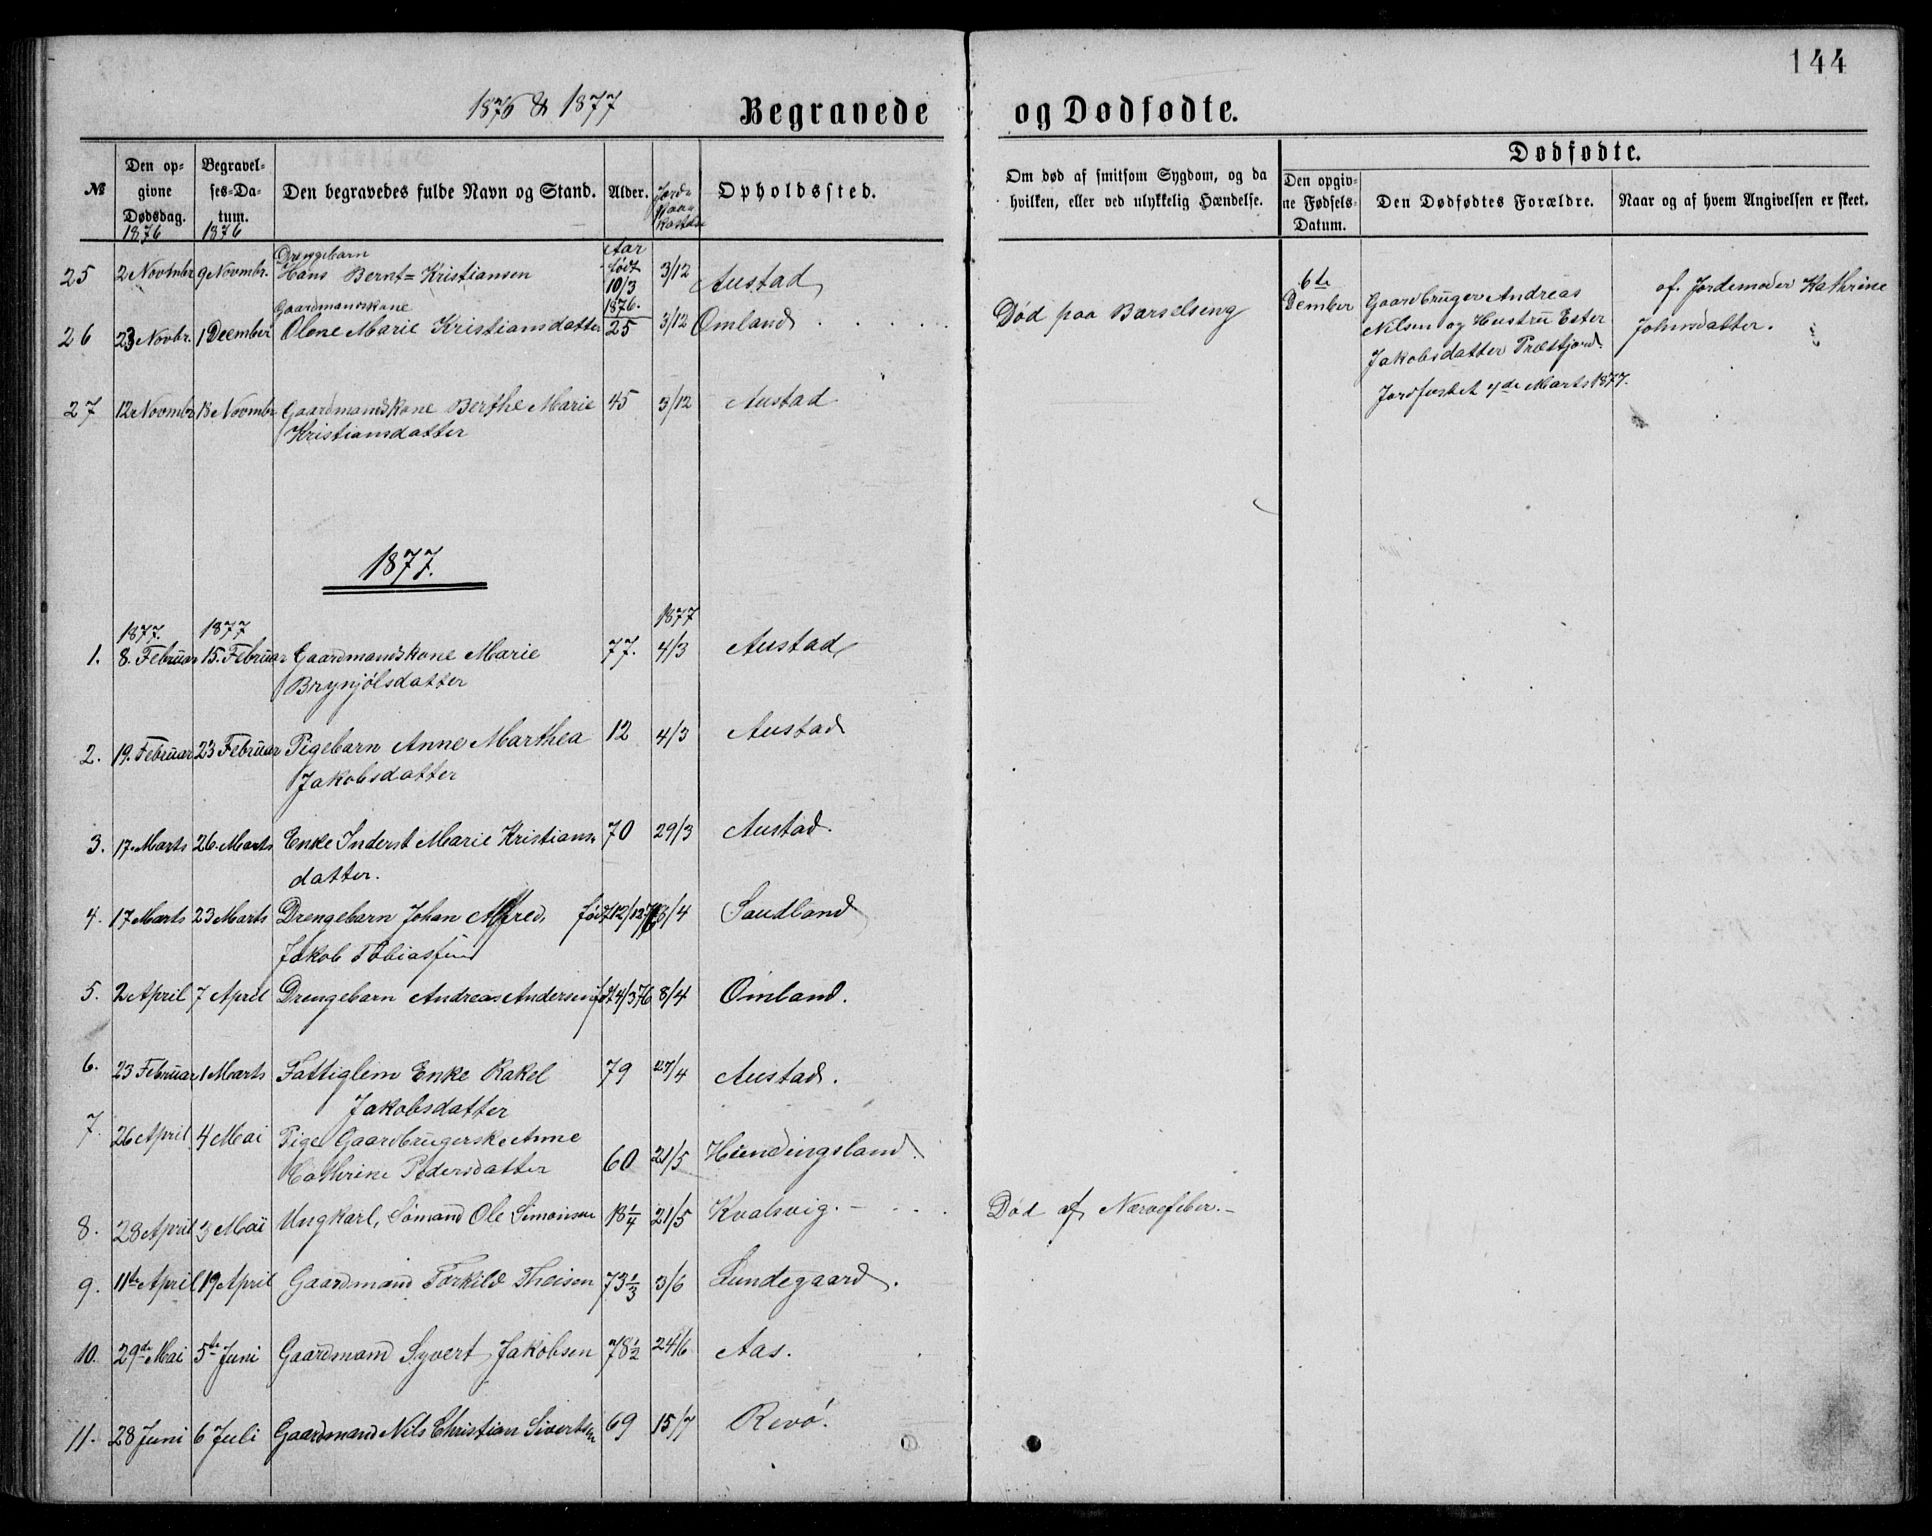 144
1876 & 1877 Begravede og Dødfødte.
№ Den opgivne Dødsdag. 1876 Begravelses-Datum. 1876 Den begravedes fulde Navn og Stand. Alder. Opholdssted.
Om død af smitsom Sygdom, og da hvilken, eller ved ulykkelig Hændelse.
Dødfødte.
Den opgivne Fødsels-Datum. Den Dødfødtes Forældre. Naar og af hvem Angivelsen er skeet.
Drengebarn Aar
25 2 Novmbr 9 Novmbr. Hans Bernt= Kristiansen født 10/3 1876. 3/12 Austad
Gaardmandskone
26 23 Novbr. 1 Deember Olene Marie Kristiansdatter 25 3/12 Omland . . . . . Død paa Barselseng
6te Dember Gaardbruger Andreas
Nilsen og Hustru Ester
Jakobsdatter Præstfjord.
Jordfæstet 4de Marts 1877.
af. Jordemoder Kathrine
Johnsdatter.
27 12 Novmbr 18 Novmbr Gaardmandskone Berthe Marie 45 3/12 Austad
Kristiansdatter
1877.
1877. 1877 1877
1. 8. Februar 15. Februar Gaardmandskone Marie 77. 4/3 Austad
Brynjölsdatter
2. 19. Februar 23 Februar Pigebarn Anne Marthea 12 4/3 Austad
Jakobsdatter
3. 17. Marts 26. Marts Enke Inderst Marie Kristians- 70 29/3 Austad.
datter.
4. 17 Marts 23 Marts Drengebarn Johan Alfred født 12/12 76 /4 Sandland
Jakob Tobiassen
5. 2 April 7 April Drengebarn Andreas Andersen født 4/3 76 8/4 Omland.
6. 23 Februar 1 Marts Fattiglem Enke Rakel 79 27/4 Austad.
Jakobsdatter
7. 26 April 4 Mai Pige Gaardbrugerske Anne
Cathrine Pedersdatter 60 21/5 Hundingsland.
8. 28 April 3 Mai Ungkarl, Sömand Ole Simonsen 18 1/4 21/5 Kvalsvig. - . . . Död af Nærvefeber. -
9. 11te April 19 April Gaardmand Tarkild Theisen 73 1/3 3/6 Lundegaard.
10. 29de Mai 5te Juni Gaardmand Syvert Jakobsen 78 1/2 24/6 Aas.
11. 28 Juni 6 Juli Gaardmand Nils Christian Sivertsen 69 15/7 Revö.